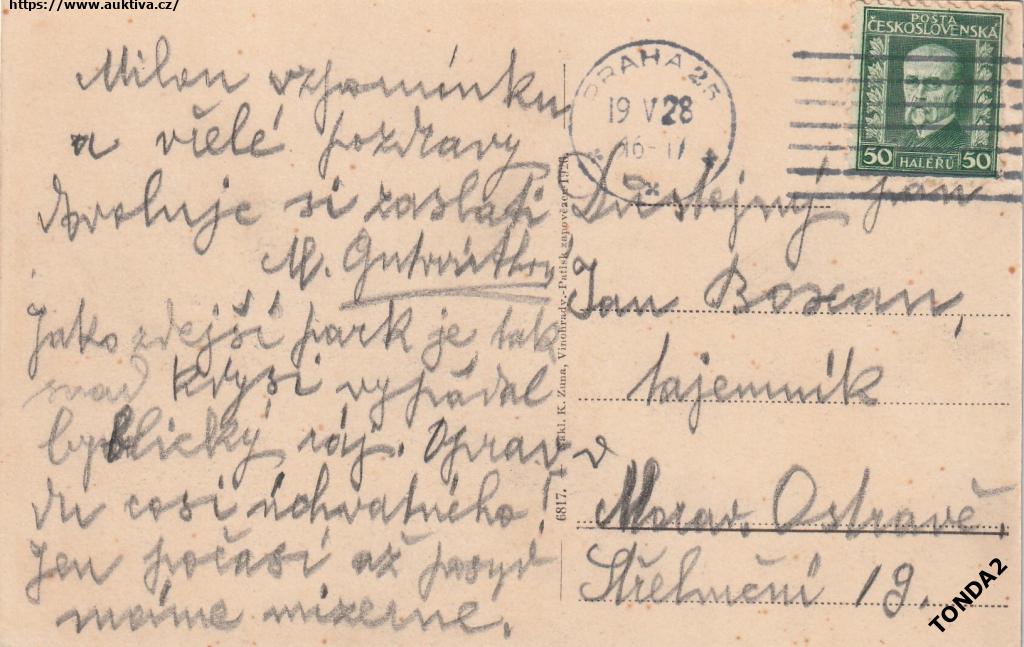 https://www.auktiva.cz/
Milou vzpomínku
a vřelé pozdravy
dovoluje si zaslati
M.
Jako zdejší park je tak
snad kdysi vypádal
byblický ráj. Oprav
du cosi úchvatného!
Jen počasí až posud
máme mizerné.
6817. Nakl. K. Zuna, Vinohrady.-Patisk zapovězen 1926.
PRAHA 25
19 V 28
16-17
POŠTA
ČESKOSLOVENSKÁ
50 HALÉŘŮ 50
Důstojný pan
Jan Boxan,
tajemník
v
Morav. Ostravě.
Střelniční 19.
TONDA2